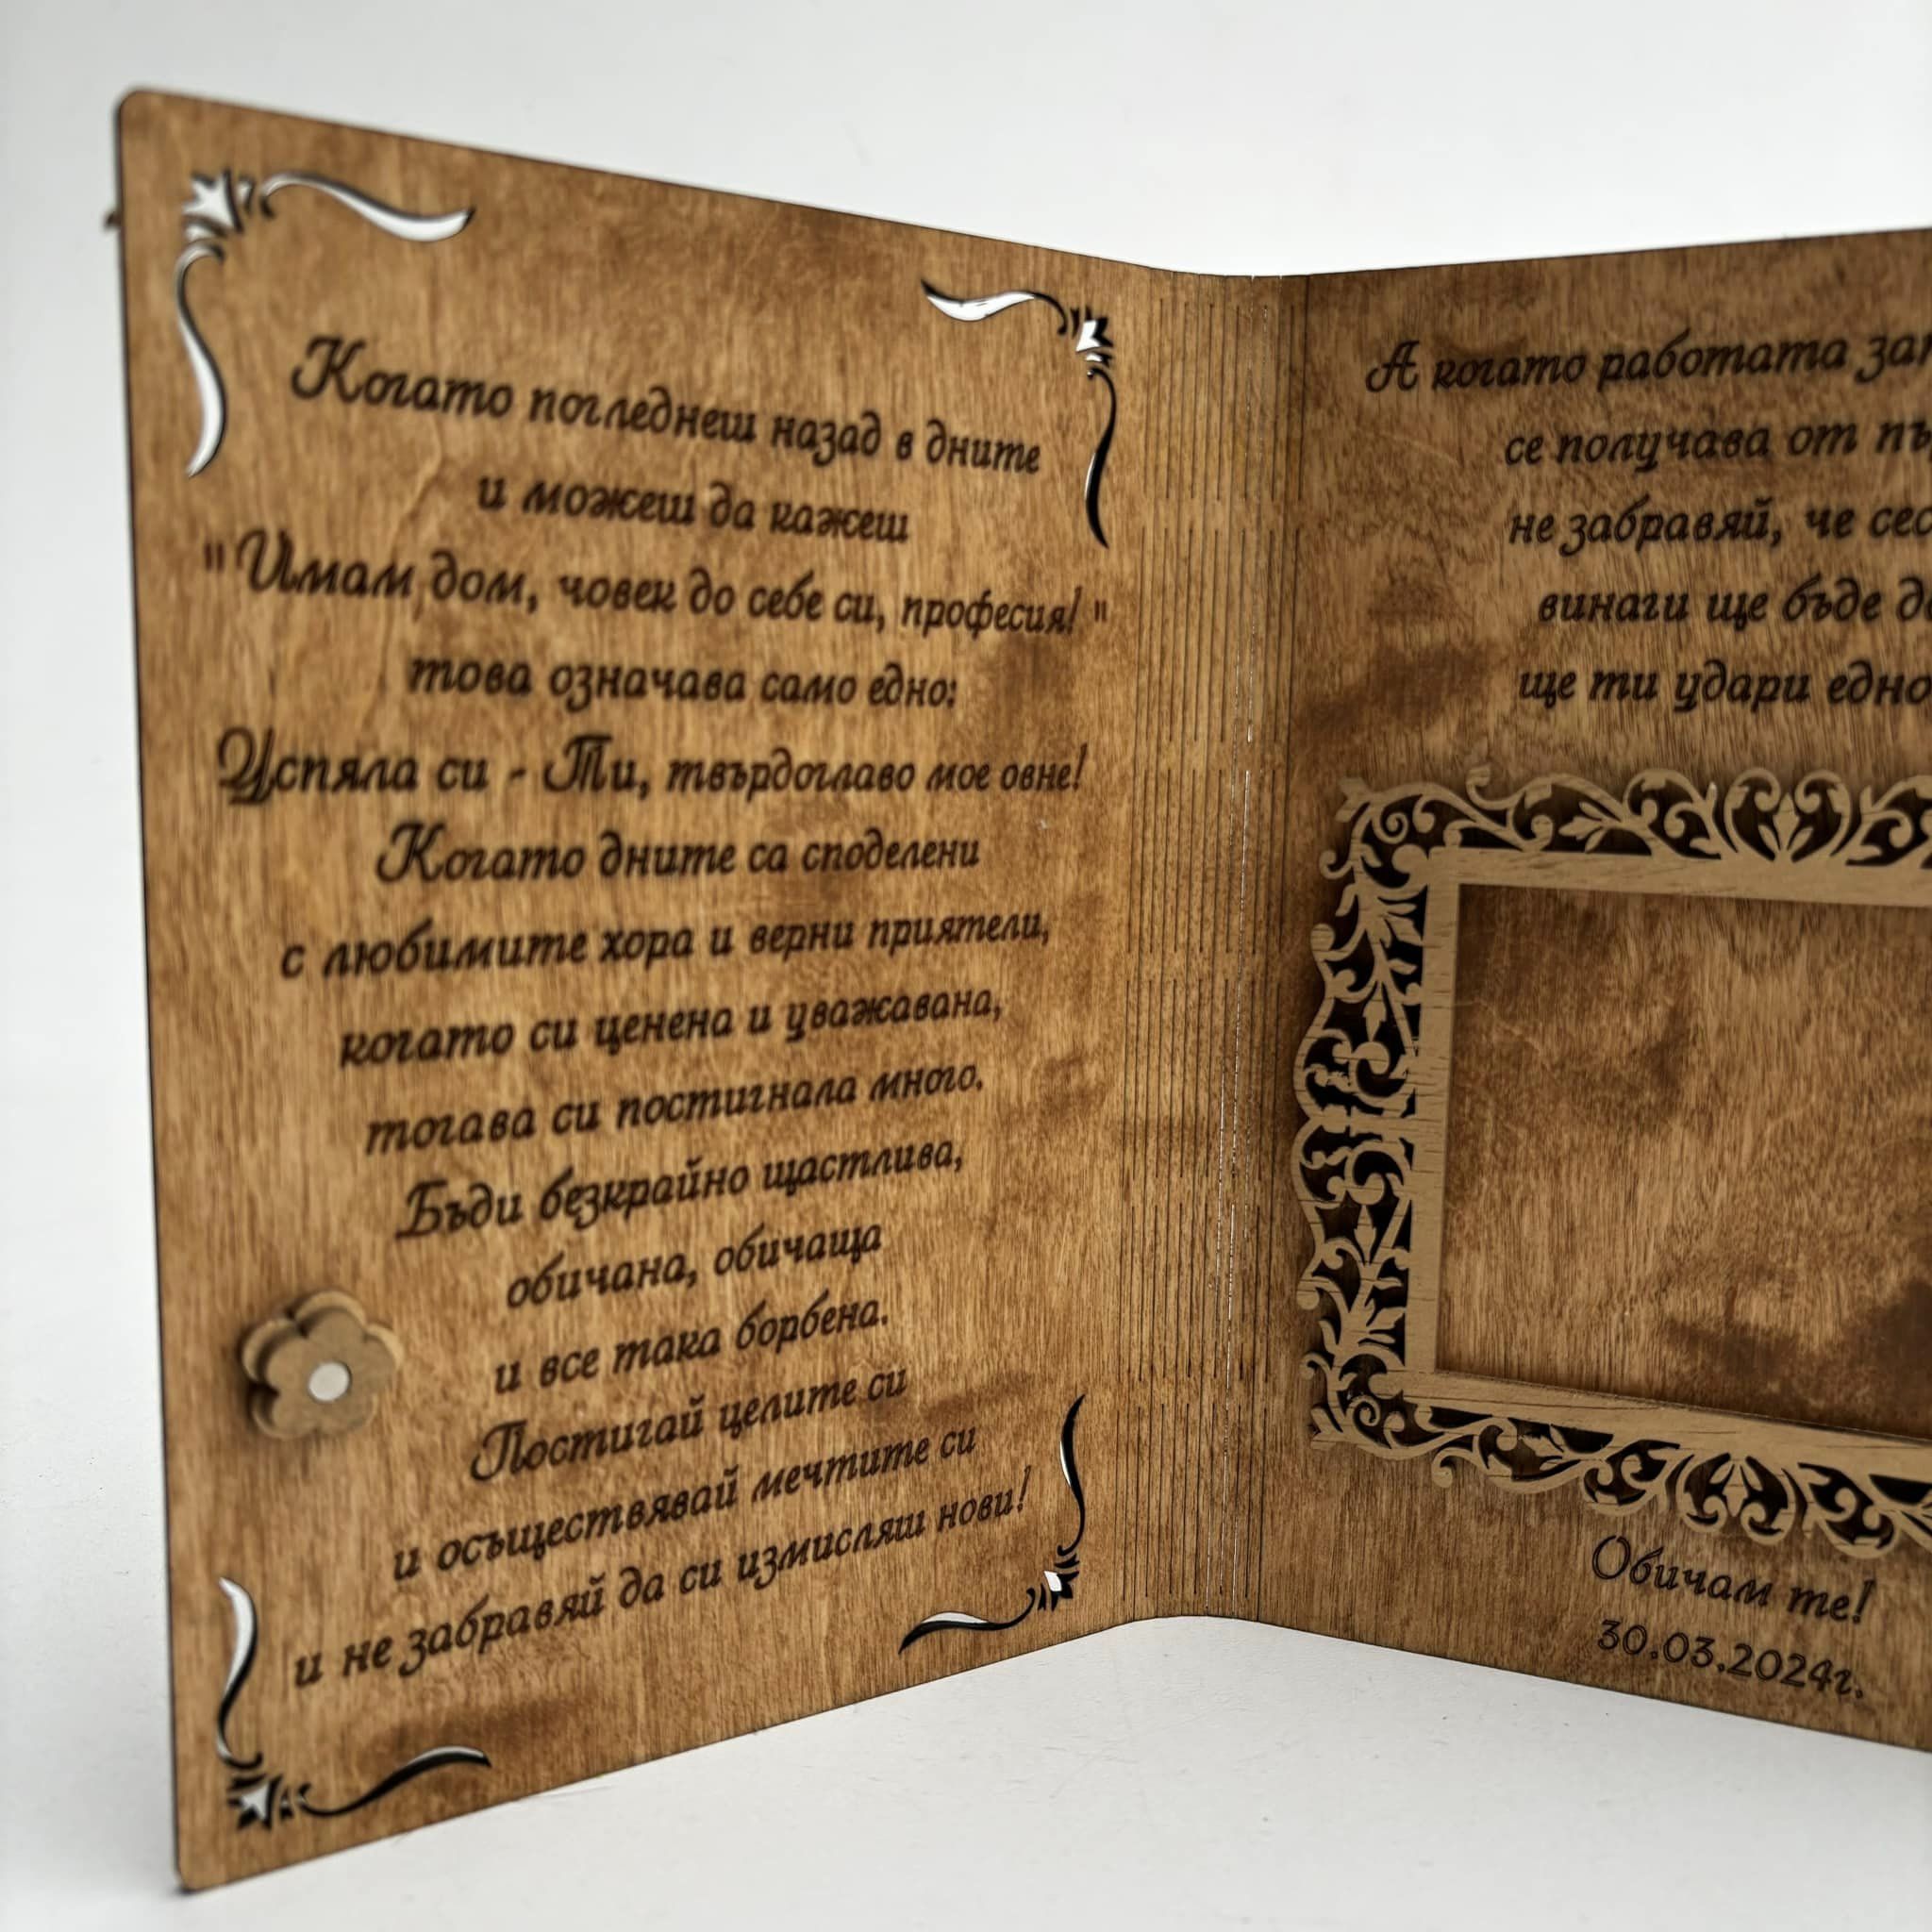 Когато погледнеш назад в дните
и можеш да кажеш
"Имам дом, човек до себе си, професия!"
това означава само едно:
Успяла си - Ти, твърдоглаво мое овне!
Когато дните са споделени
с любимите хора и верни приятели,
когато си ценена и уважавана,
тогава си постигнала много.
Бъди безкрайно щастлива,
обичана, обичаща
и все така борбена.
Постигай целите си
и осъществявай мечтите си
и не забравяй да си измисляш нови!
А когато работата
се получава от
не забравяй, че
винаги ще бъде
ще ти удари
Обичам те!
30.03.2024г.